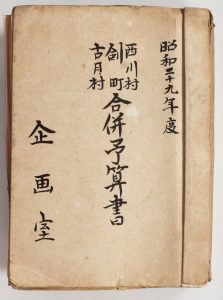 昭和二十九年度
西川村
剣町
古月村
合併予算書
企画室